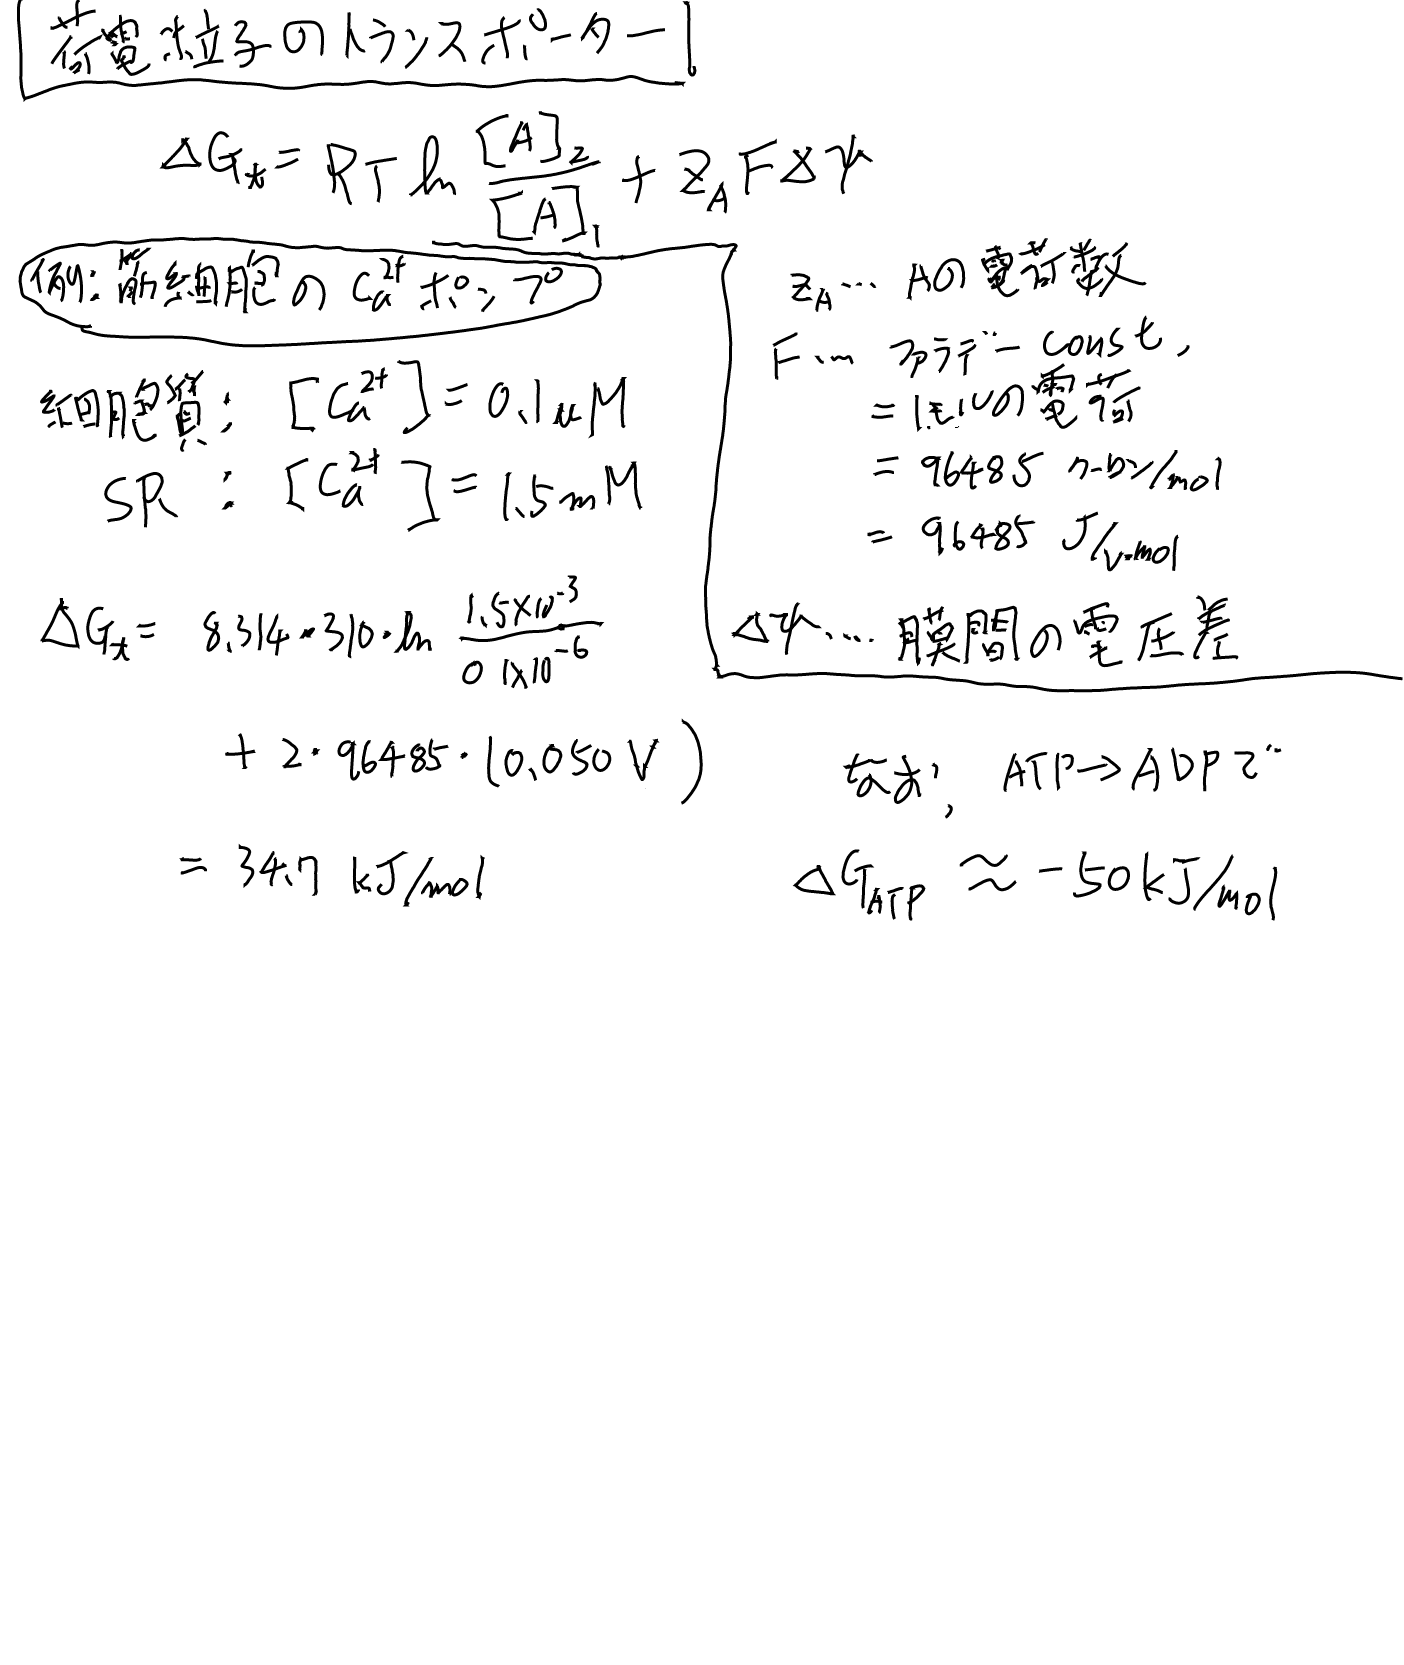 荷電粒子のトランスポーター
ΔGt = RT ln [A]2/[A]1 + ZA F Δψ
例: 筋細胞の Ca2+ ポンプ
細胞質: [Ca2+] = 0.1μM
SR : [Ca2+] = 1.5mM
ΔGt = 8.314・310・ln 1.5×10^-3 / 0.1×10^-6
+ 2・96485・(0.050V)
= 34.7 kJ/mol
ZA … Aの電荷数
F … ファラデー const,
= 1モルの電荷
= 96485 クーロン/mol
= 96485 J/V・mol
Δψ … 膜間の電圧差
なお, ATP→ADPで
ΔGATP ≈ -50kJ/mol